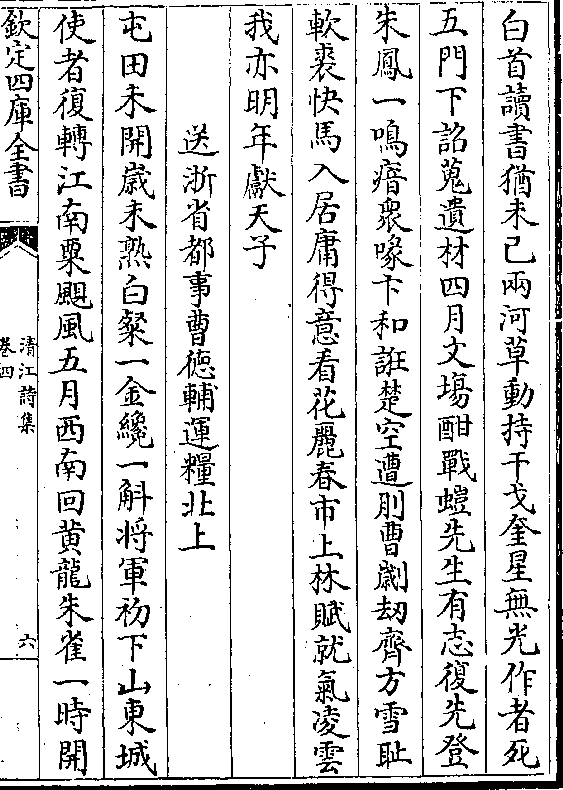 白首讀書猶未已兩河草動持干戈奎星無光作者死
五門下詔蒐遺材四月文塲酣戰螘先生有志復先登
朱鳳一鳴瘖衆喙卞和誑楚空遭刖曹劌刼齊方雪耻
軟裘快馬入居庸得意看花麗春市上林賦就氣凌雲
我亦明年獻天子
送浙省都事曹徳輔運糧北上
屯田未開嵗未熟白粲一金纔一斛将軍初下山東城
使者復轉江南粟颶風五月西南回黄龍朱雀一時開
欽定四庫全書
清江詩集
卷四
六